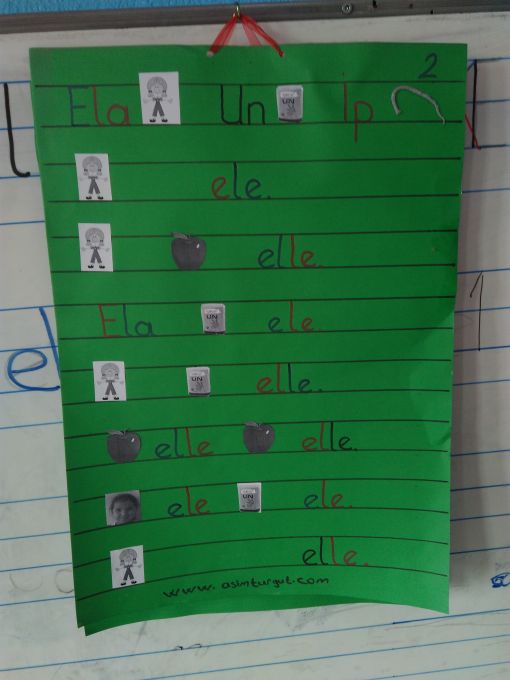 2
Ela Un İp
ele.
elle.
Ela UN ele.
UN elle.
elle elle.
ele UN ele.
elle.
www.asimturgut.com